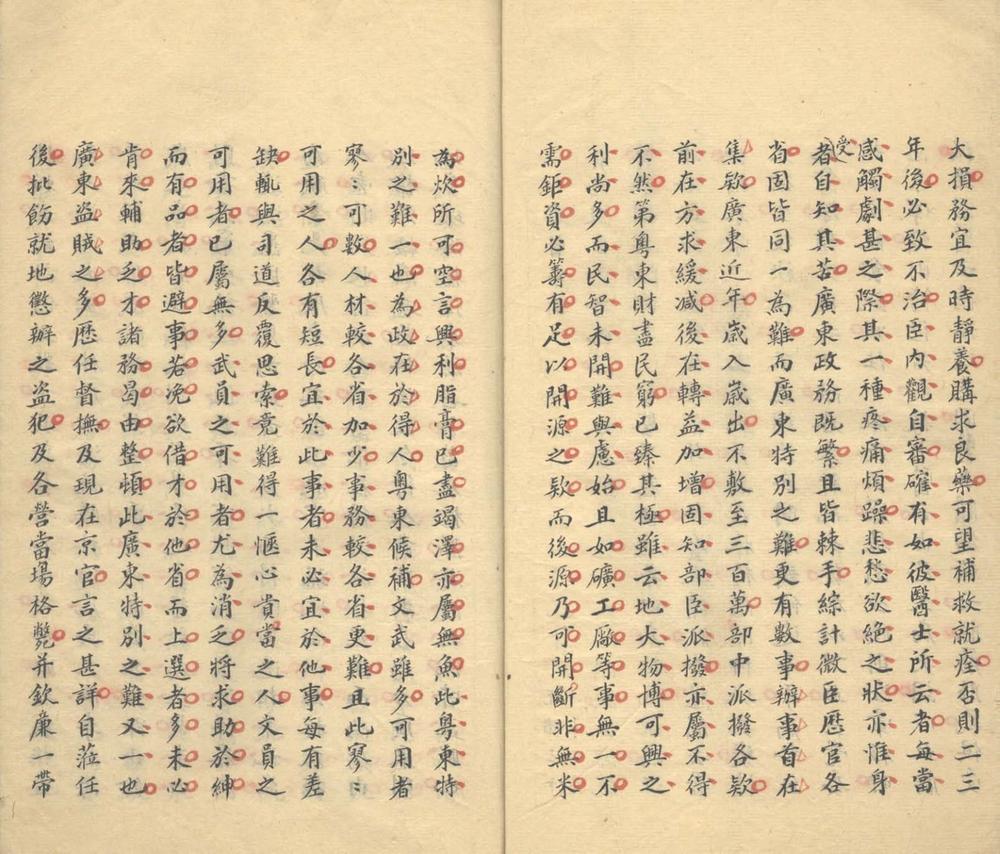 大損務宜及時靜養購求良藥可望補救就痊否則二三
年後必致不治臣內觀自審確有如彼醫士所云者每當
感觸劇甚之際其一種疼痛煩躁悲愁欲絕之狀亦惟身
受者自知其苦廣東政務既繁且皆棘手綜計微臣歷官各
省固皆同一為難而廣東特別之難更有數事辦事首在
集欵廣東近年歲入歲出不敷至三百萬部中派撥各欵
前在方求緩減後在轉益加增固知部臣派撥亦屬不得
不然第粵東財盡民窮已臻其極雖云地大物博可興之
利尚多而民智未開難與慮始且如礦工廠等事無一不
需鉅資必籌有足以開源之欵而後源乃可開斷非無米
為炊所可空言興利脂膏已盡竭澤亦屬無魚此粵東特
別之難一也為政在於得人粵東候補文武雖多可用者
寥：可數人材較各省加少事務較各省更難且此寥：
可用之人各有短長宜於此事者未必宜於他事每有差
缺輒與司道反覆思索竟難得一愜心貴當之人文員之
可用者已屬無多武員之可用者尤為消乏將求助於紳
而有品者皆避事若浼欲借才於他省而上選者多未必
肯來輔助乏才諸務曷由整頓此廣東特別之難又一也
廣東盜賊之多歷任督撫及現在京官言之甚詳自蒞任
後批飭就地懲辦之盜犯及各營當場格斃并欽廉一帶